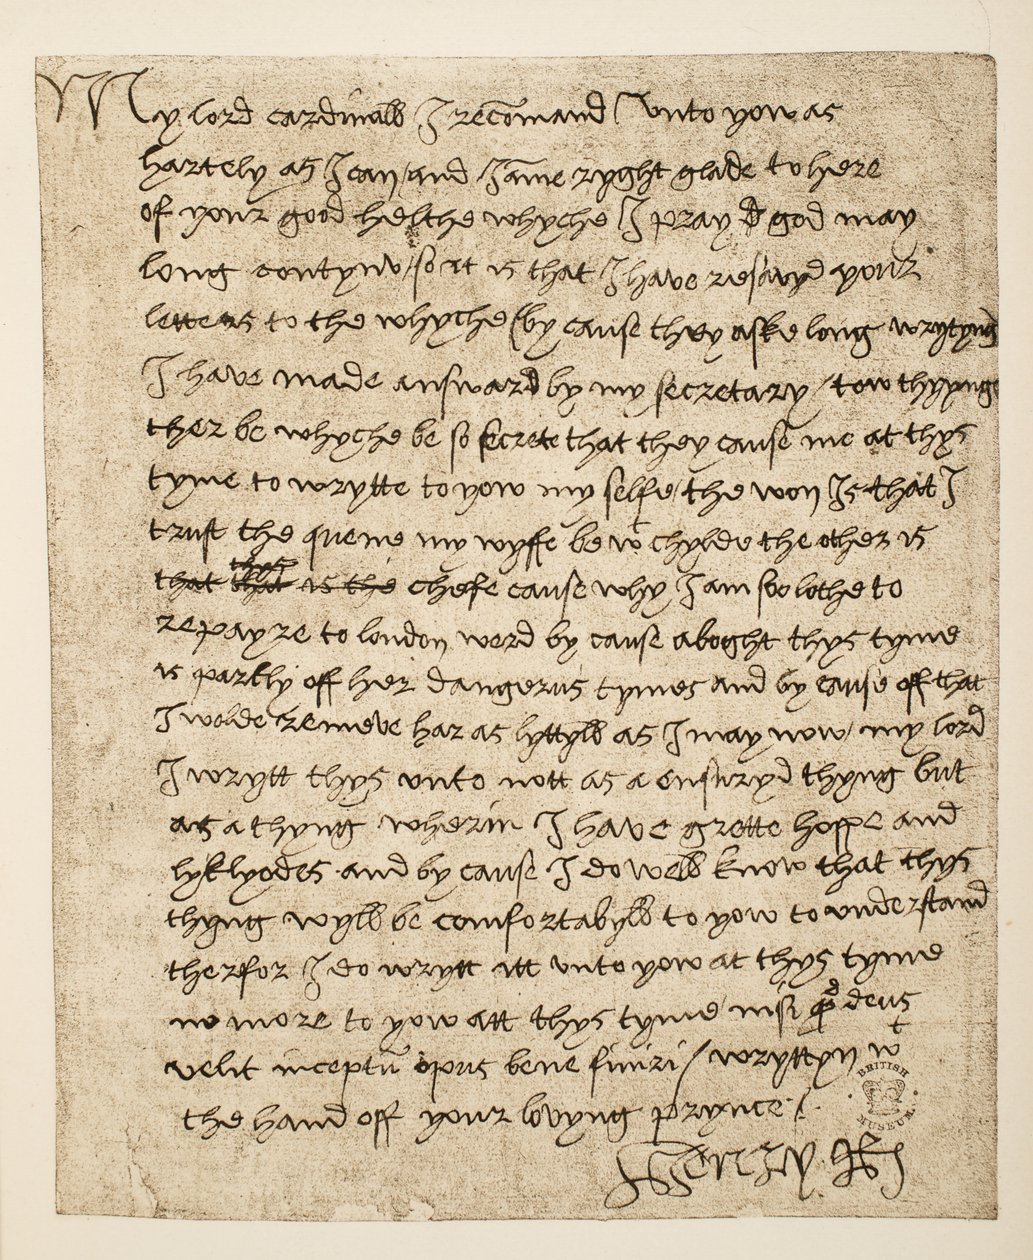 My lord cardinall I recomand unto yow as
hartely as I can / and I ame ryght glade to here
of your good helthe whyche I pray god may
long contynw / so it is that I have resavyd your
letters to the whyche (by cause they aske long wrytyng
I have made answard by my secretary / tow thynges
ther be whyche be so secrete that they cause me at thys
tyme to wrytte to yow my selfe / the won Is that I
trust the quene my wyffe be wt chylde the other is
that is the chefe cause why I am soo lothe to
repayre to london werd by cause aboght thys tyme
is partly off her dangerus tymes and by cause off that
I wolde remeve har as lyttyll as I may now / my lord
I wrytt thys unto nott as a ensuryd thyng but
as a thyng wherin I have grette hoppe and
lyklyodes and by cause I do well know that thys
thyng wyll be comfortabyll to yow to understand
therfor I do wrytt itt unto yow at thys tyme
no more to yow att thys tyme / nisi qd deus
velit inceptū opus bene finiri / wryttyn wt
the hand off your lovyng prynce /.
Henry R
BRITISH
MUSEUM